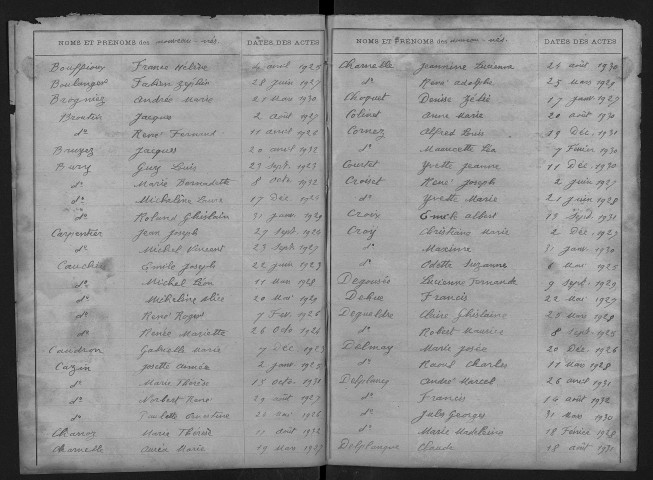 NOMS ET PRÉNOMS des nouveau-nés. DATES DES ACTES
Bouffioux France Hélène 4 avril 1925
Boulanger Fabien Zéphir 28 juin 1927
Brogniez Andrée Marie 1930
Broutin Jacques 2 août 1927
d° René Fernand 11 avril 1928
Bruyez Jacques 20 avril 1932
Bury Guy Louis 23 Sept. 1923
d° Marie Bernadette 8 octe 1932
d° Micheline 17 Déc. 1926
d° Roland Ghislain 31 janv. 1929
Carpentier Jean Joseph 27 Sept. 1926
d° Michel Vincent 23 Sept. 1927
Cauchies Emile Joseph 22 juin 1923
d° Michel Léon 11 Mai 1928
d° Micheline Alice 20 Mai 1929
d° René Roger 7 Févr. 1926
d° Renée Mariette 26 Octe 1926
Caudron Gabrielle Marie 7 Déc. 1923
Cazin Josette Aimée 2 janv. 1925
d° Marie Thérèse 15 Octe 1931
d° Norbert René 29 août 1927
d° Paulette 1926
Charron Marie Thérèse 11 août 1932
Charnelle Marie 19 Mars 1927
NOMS ET PRÉNOMS des nouveau-nés. DATES DES ACTES
Charnelle Jeannine Lucienne 26 août 1930
d° René Adolphe 25 Mars 1929
Choquet Denise Zélie 17 janvr 1927
Colinet Anne Marie 20 août 1930
Cornez Alfred Louis 19 Déc. 1931
d° Mauricette Léa 7 Février 1930
Courtet Yvette Jeanne 11 Déc. 1930
Croiset René Joseph 2 juin 1927
d° Yvette Marie 21 juin 1928
Croix Emile Albert 19 Sept. 1931
Croy Christiane Marie 2 Déc. 1927
d° Maxime 31 janv. 1930
d° Odette Suzanne 6 Mai 1925
Degouis Lucienne Fernande 9 Sept. 1929
Delve Francis 22 Mai 1927
Dequeldre Claire Ghislaine 29 Mars 1928
d° Robert Maurice 8 Sept. 1925
Delmay Marie Josée 20 Déc. 1926
d° Raoul Charles 11 Mai 1928
Delplancq André Marcel 26 avril 1931
d° Francis 14 août 1932
d° Jules Georges 31 Mai 1930
d° Marie Madeleine 18 Février 1928
Delplanque Claude 18 août 1931